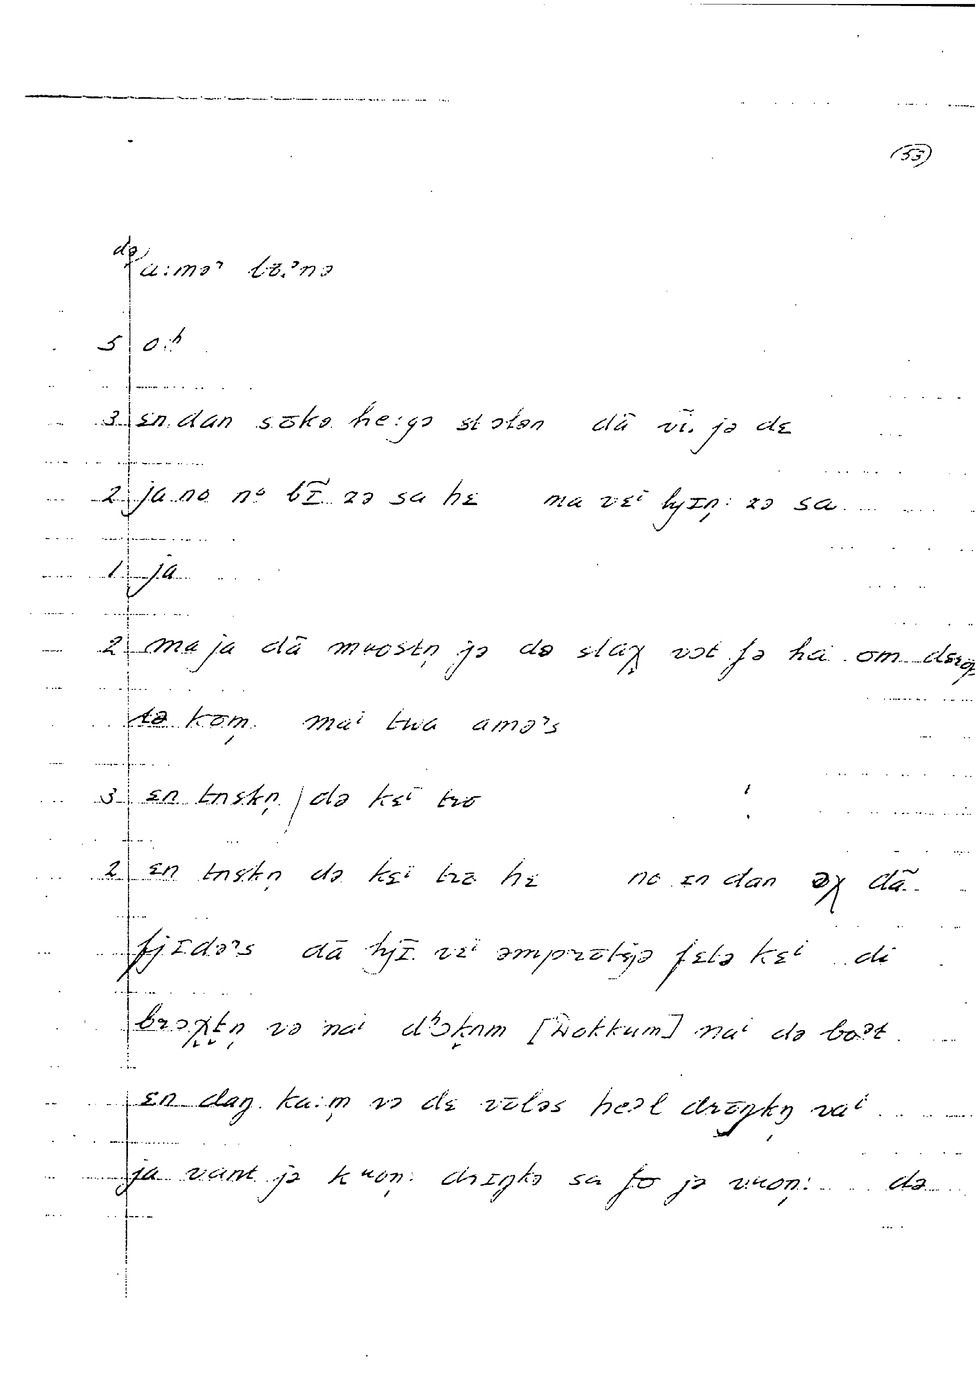 (53)
də
a:məʳ bɛ.ʳnə
5 o:ʰ
3 ɛn dan sōkə he:gə stolən dā vī. jə dɛ
2 ja no nº bĩ zə sa hɛ ma vɛⁱ ljɪņ: zə sa
1 ja
2 ma ja dā muostņ jə də slaχ vɔt fə ha om dɛrop
tə koṃ maⁱ twa aməʳs
3 ɛn tnskņ / də kɛⁱ tro
2 ɛn tnskņ də kɛⁱ tro hɛ no ɪn dan əχ dā
fjɪdəʳs dā ljĩ vɛⁱ əmprōtėjə fɛlə kɛⁱ di
brɔχtņ və naⁱ dʰɔkņm [Dokkum] naⁱ də boᵊt
ɛn daŋ ka:ṃ və dɛ vōləs heəl drīŋkŋ vaⁱ
ja vant jə kuoņ: drɪŋkə sa fo jə vuoņ: də